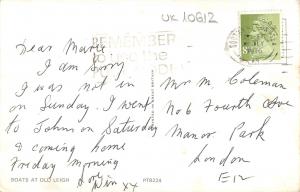 UK 10612
REMEMBER
to use the
Dear Marie
I am sorry
I was not in
on Sunday. I went
to Johns on Saturday
& coming home
Freday morning
Win xx
Mr M. Coleman
No 6 Fourth Ave
Manor Park
London
E12
BOATS AT OLD LEIGH
PT8224